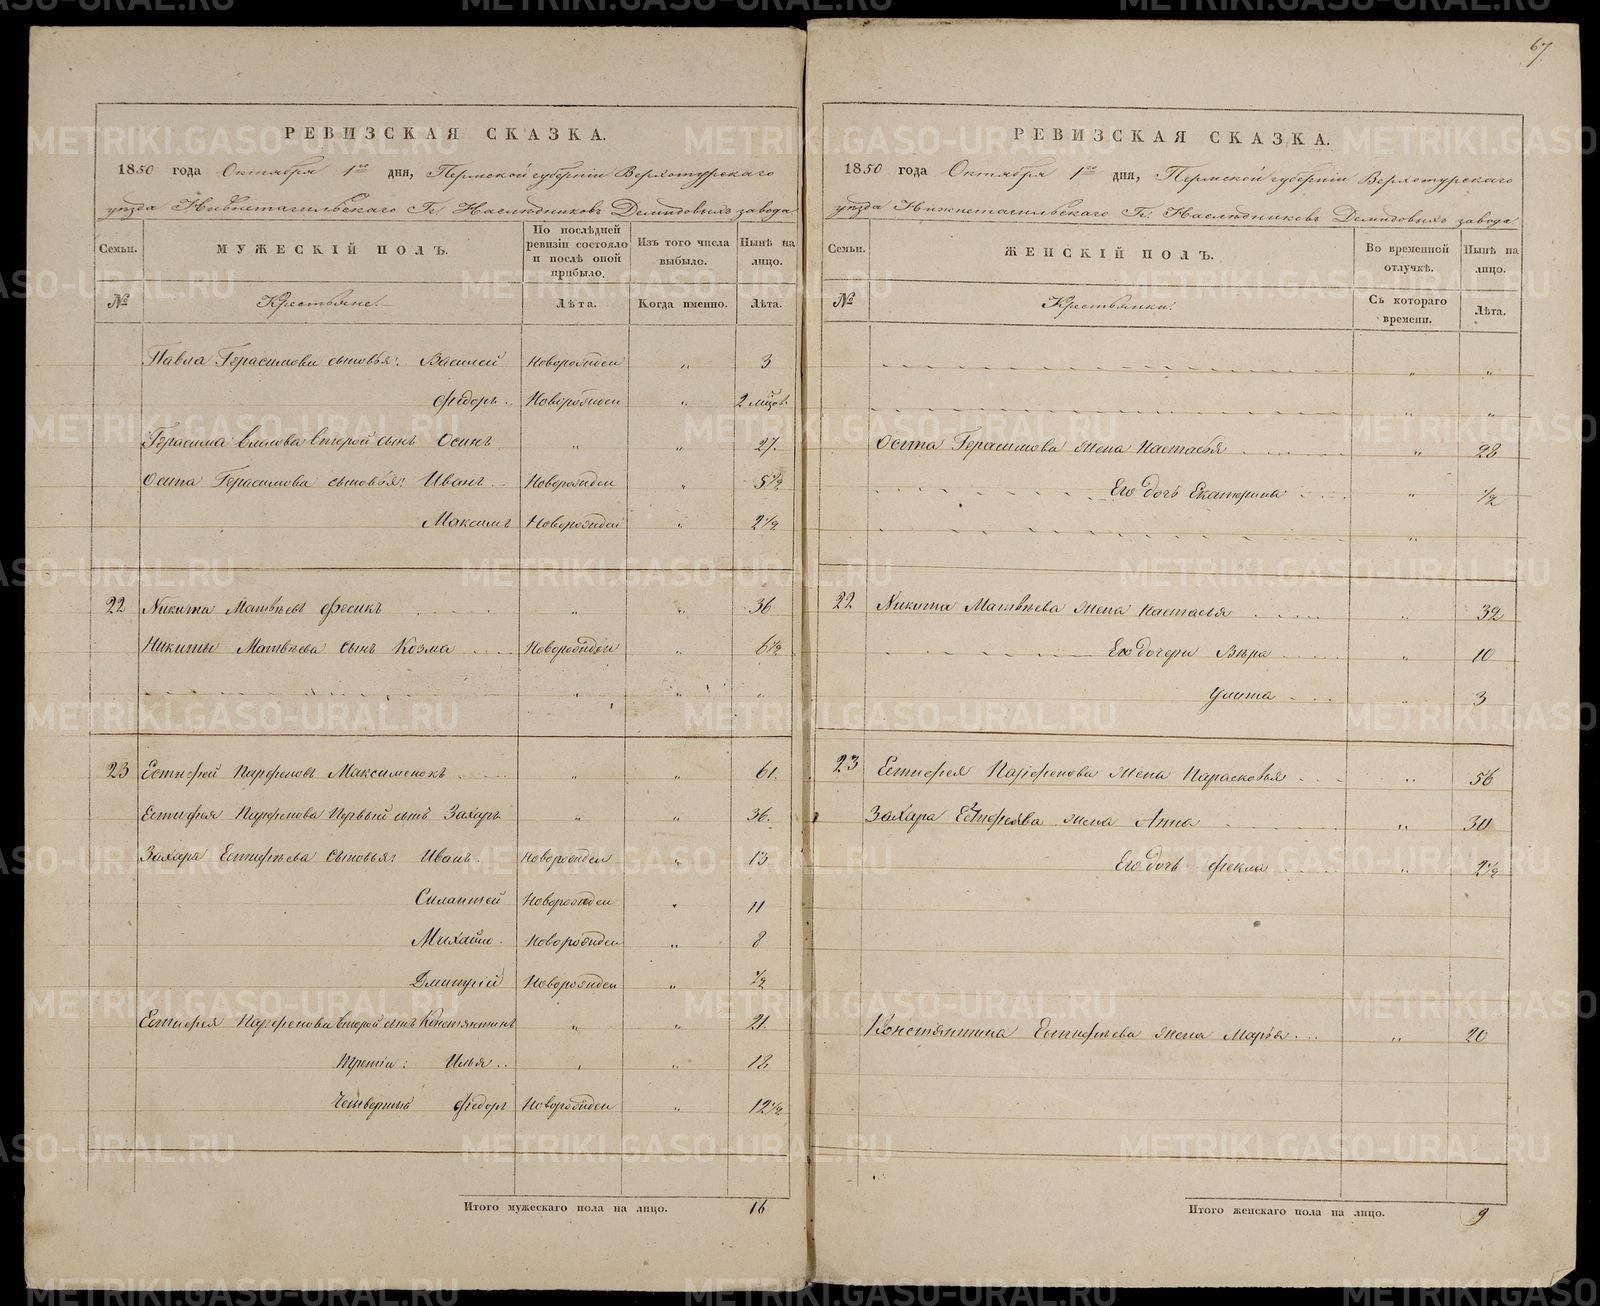 67
РЕВИЗСКАЯ СКАЗКА.
1850 года Октября 1го дня, Пермской губернiи Верхотурскаго
уѣзда Нижнетагильскаго Гг. Наслѣдниковъ Демидовыхъ завода
Семьи. МУЖЕСКIЙ ПОЛЪ. По послѣдней ревизiи состояло и послѣ оной прибыло. Изъ того числа выбыло. Нынѣ на лицо.
№ Крестьяне. Лѣта. Когда именно. Лѣта.
Павла Герасимова сыновья: Василей Новорожден „ 3
Ѳедоръ Новорожден „ 2 мѣсяц.
Герасима Власова второй сынъ Осипъ „ „ 27.
Осипа Герасимова сыновья: Иванъ Новорожден „ 5½
Максимъ Новорожден „ 2½
22 Никита Матвѣевъ Фесикъ „ „ 36
Никиты Матвѣева сынъ Козма Новорожден „ 6½
„ „ „
23 Естифей Парфеновъ Максименокъ „ „ 61.
Естифея Парфенова первый сынъ Захаръ „ „ 36.
Захара Естифѣева сыновья: Иванъ Новорожден „ 13
Силантей Новорожден „ 11
Михайло Новорожден „ 8
Дмитрiй Новорожден „ ½
Естифея Парфенова второй сынъ Константинъ „ „ 21.
третiй: Илья „ „ 18
Четвертый Ѳедоръ Новорожден „ 12½
Итого мужескаго пола на лицо. 16
РЕВИЗСКАЯ СКАЗКА.
1850 года Октября 1го дня, Пермской губернiи Верхотурскаго
уѣзда Нижнетагильскаго Гг. Наслѣдниковъ Демидовыхъ завода
Семьи. ЖЕНСКIЙ ПОЛЪ. Во временной отлучкѣ. Нынѣ на лицо.
№ Крестьянки. Съ котораго времени. Лѣта.
„ „
„ „
Осипа Герасимова жена Настасья „ 28
Его дочь Екатерина „ ½
„
22 Никита Матвѣева жена Настасья „ 32
Его дочери Вѣра „ 10
Улита „ 3
23 Естифея Парфенова жена Парасковья „ 56
Захара Естифеява жена Анна „ 30
Его дочь Фекла „ 2½
Константина Естифѣева жена Марья „ 20
Итого женскаго пола на лицо. 9
METRIKI.GASO-URAL.RU